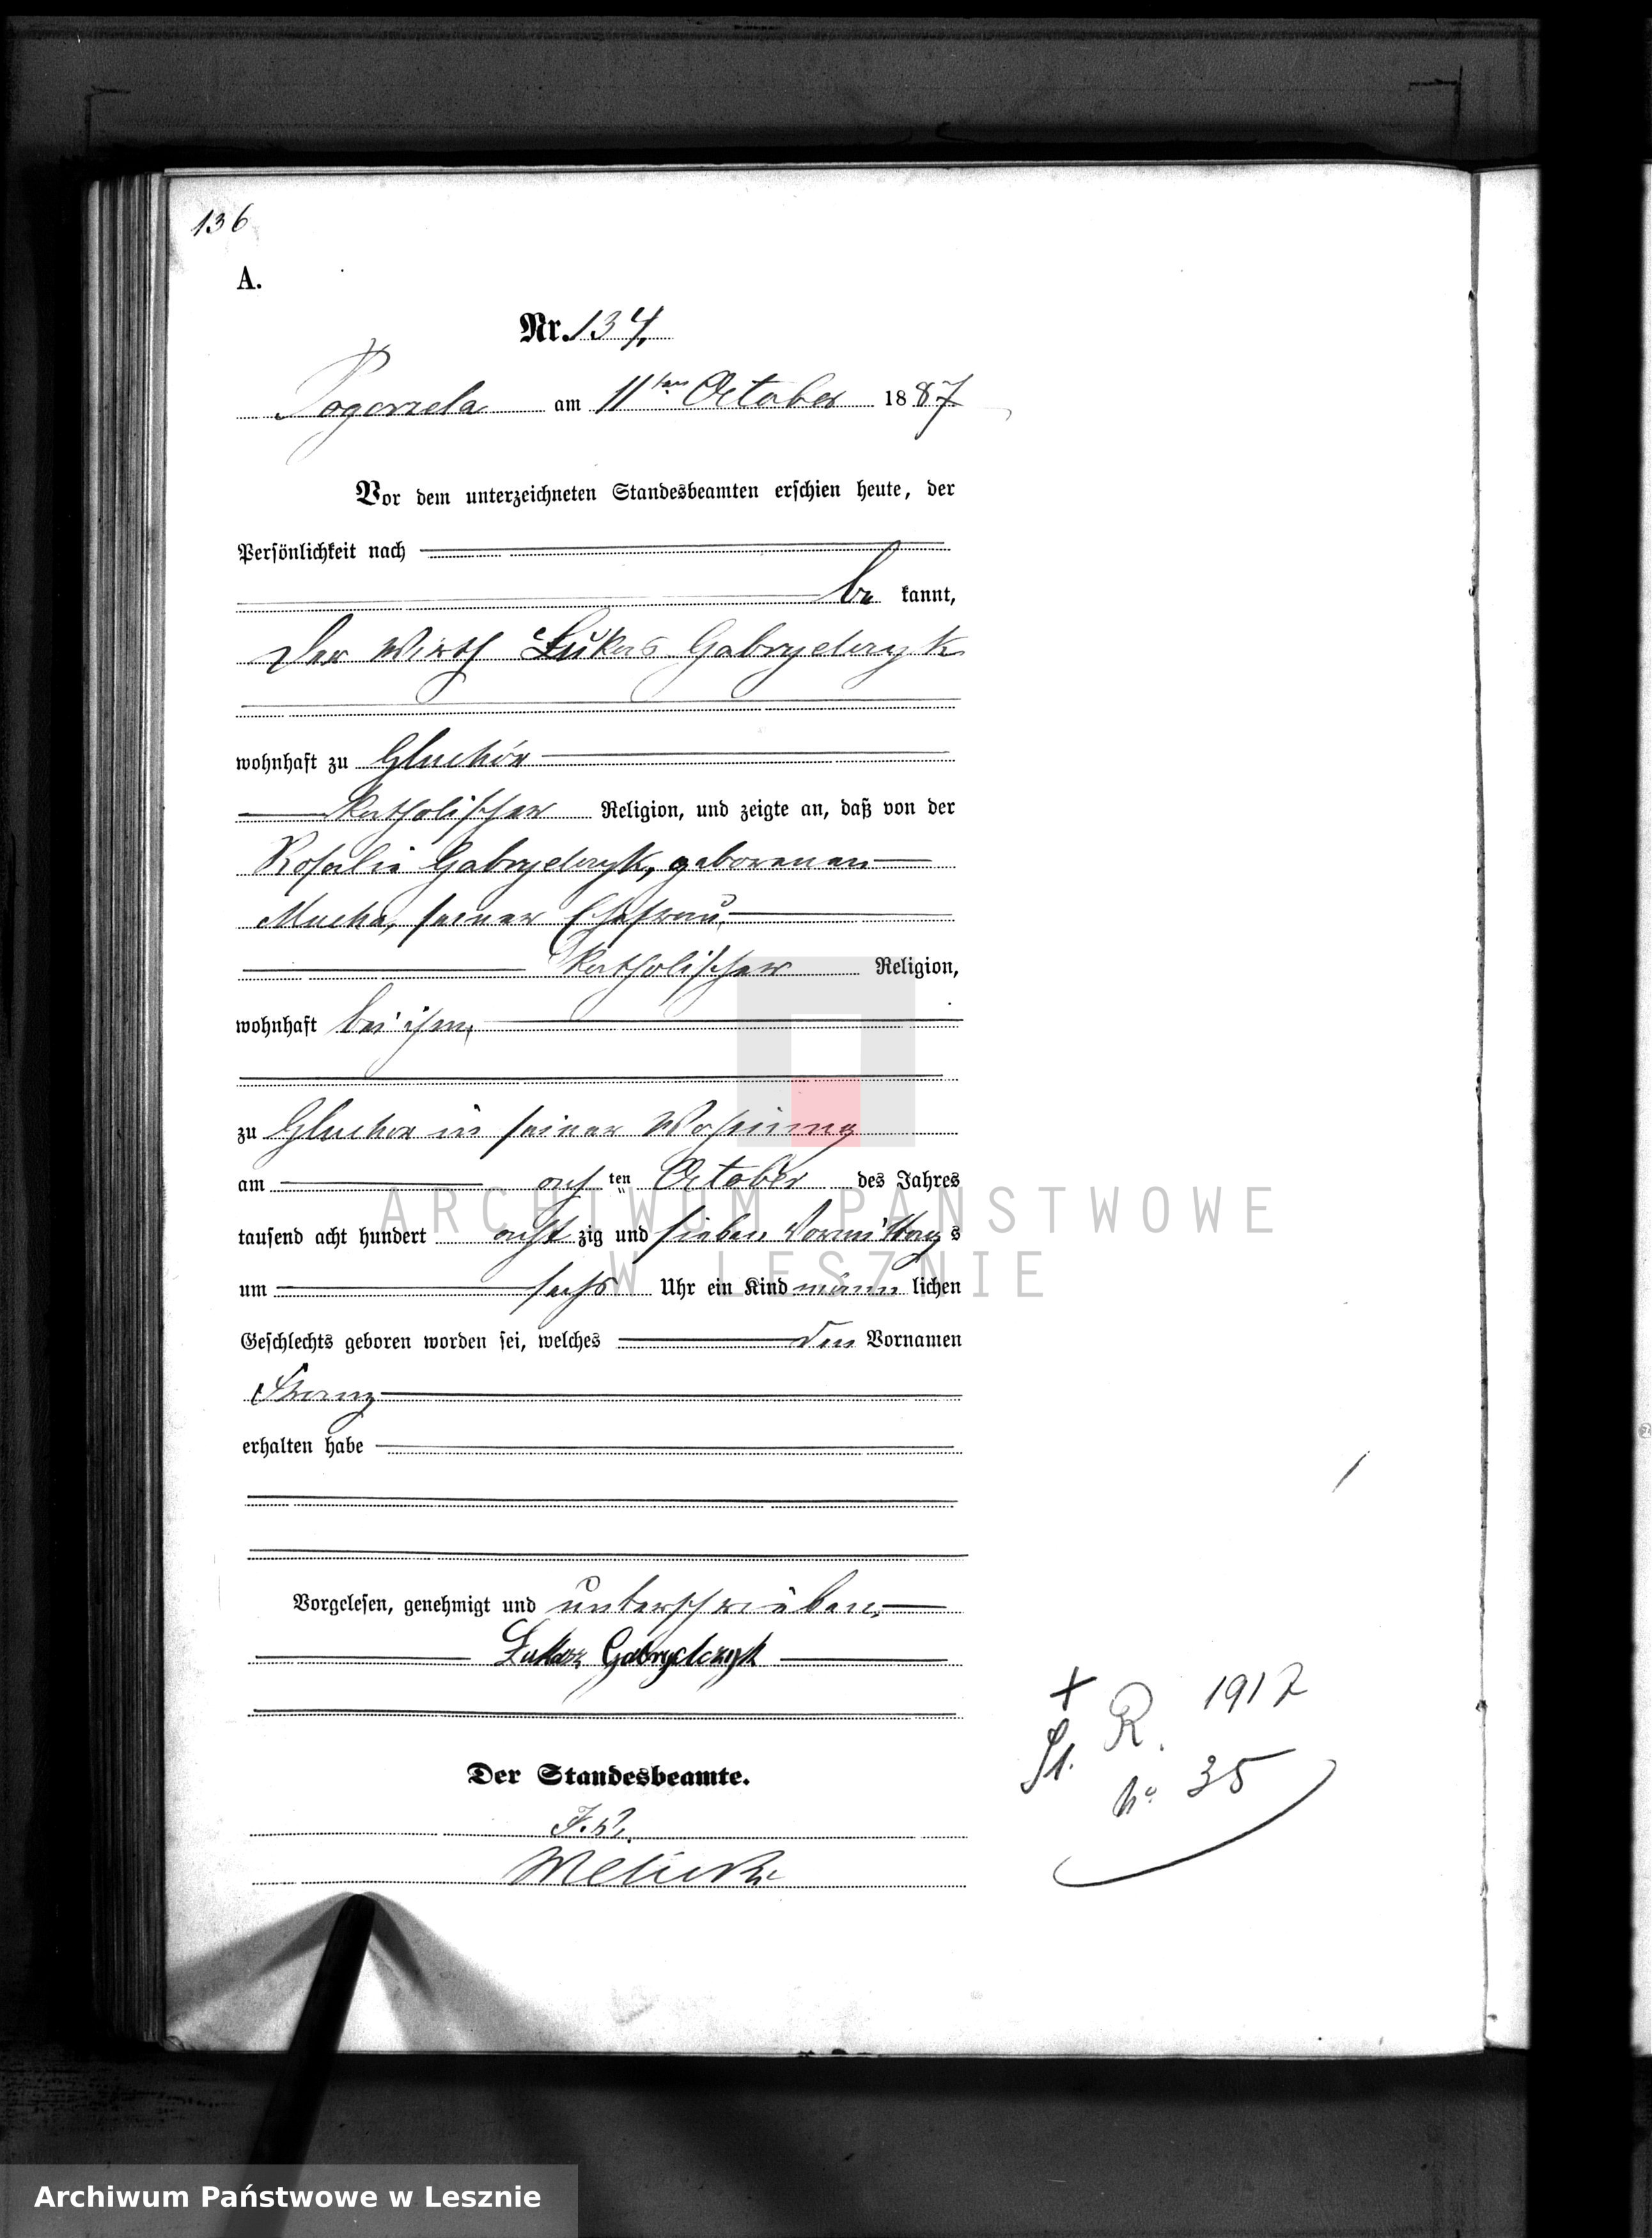 136
A.
Nr. 134.
Pogorzela am 11ten October 1887
Vor dem unterzeichneten Standesbeamten erschien heute, der
Persönlichkeit nach
be kannt,
der Wirth Lukas Gabryelczyk
wohnhaft zu Gluchów
katholischer Religion, und zeigte an, daß von der
Rosalie Gabryelczyk, geborenen
Mucha, seiner Ehefrau
katholischer Religion,
wohnhaft bei ihm,
zu Gluchow in seiner Wohnung
am achten October des Jahres
tausend acht hundert achtzig und sieben Vormittags
um sechs Uhr ein Kind männlichen
Geschlechts geboren worden sei, welches den Vornamen
Franz
erhalten habe
Vorgelesen, genehmigt und unterschrieben.
Lukasz Gabryelczyk
Der Standesbeamte.
+ 1917
St. R.
No 35
ARCHIWUM PAŃSTWOWE
W LESZNIE
Archiwum Państwowe w Lesznie